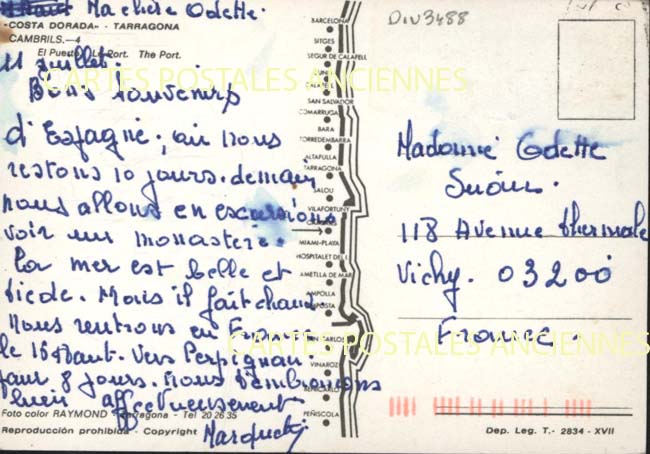 Ma chère Odette.
"COSTA DORADA" - TARRAGONA
CAMBRILS.—4
El Puerto. Le Port. The Port.
11 juillet.
Bons souvenirs
d'Espagne, où nous
restons 10 jours. demain
nous allons en excursions
voir un monastère.
La mer est belle et
tiède. Mais il fait chaud.
nous rentrons en F
le 16 Haut. Vers Perpignan
pour 8 jours. nous t'embrassons
bien affectueusement
Foto color RAYMOND - Tarragona - Tel 20 26 35
Reproducción prohibida - Copyright
BARCELONA
SITGES
SEGUR DE CALAFELL
CALAFELL
SAN SALVADOR
COMARRUGA
BARA
TORREDEMBARRA
ALTAFULLA
TARRAGONA
SALOU
VILAFORTUNY
CAMBRILS
MIAMI-PLAYA
HOSPITALET DEL I.
AMETLLA DE MAR
AMPOLLA
AMPOSTA
SAN CARLOS
VINAROZ
BENICARLO
PEÑISCOLA
DIV3488
Madame Odette
118 Avenue thermale
Vichy. 03200
France
Dep. Leg. T.- 2834 - XVII
CARTES POSTALES ANCIENNES
CARTES POSTALES ANCIENNES